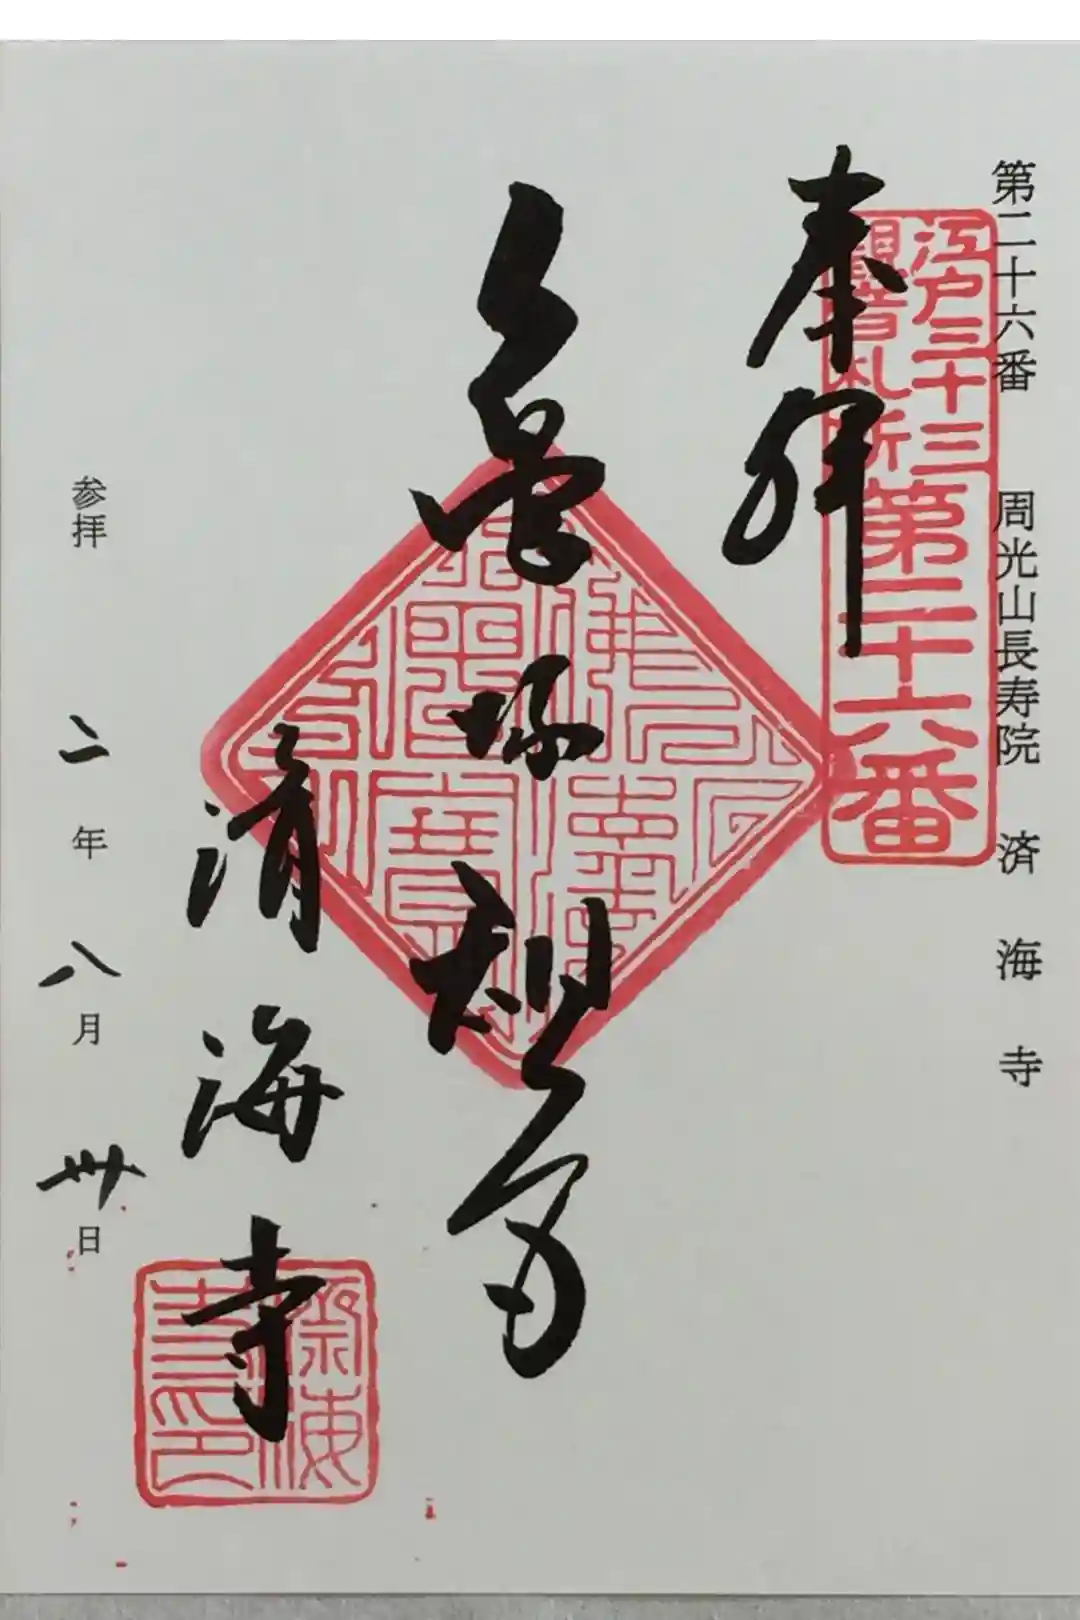 第二十六番 周光山長寿院 済海寺
江戸三十三
観音札所
第二十六番
奉拝
亀塚
済海寺
参拝 二年八月卅日